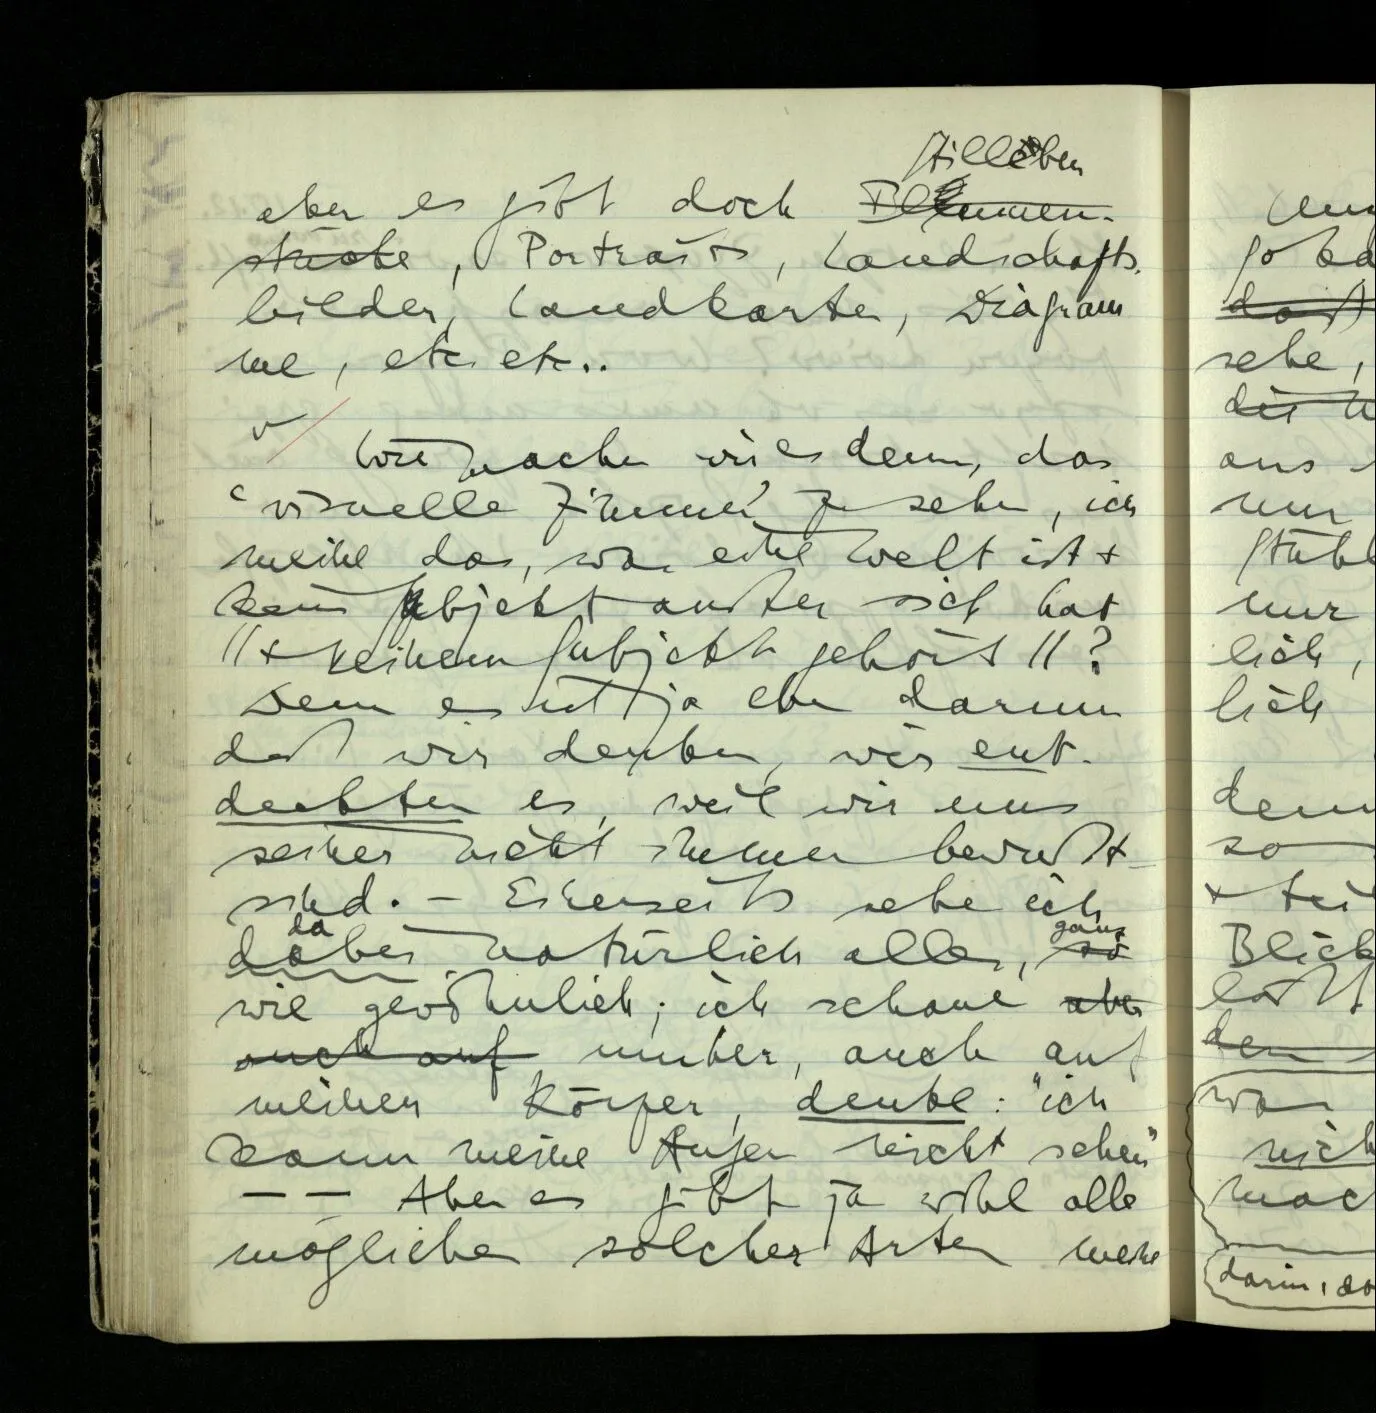 Stilleben
aber es gibt doch Blumen-
stücke, Porträts, Landschafts-
bilder, Landkarten, Diagram
me, etc etc..
Wie machen wir es denn, das
‘visuelle Zimmer’ zu sehen, ich
meine das, was eine Welt ist +
kein Subjekt außer sich hat
// + keinem Subjekt gehört // ?
Denn es ist ja eben darum
daß wir denken, wir ent-
deckten es, weil wir uns
seiner nicht immer bewußt
sind. – Einerseits sehe ich
da ganz
dabei natürlich alles, so
wie gewöhnlich; ich schaue aber
auch auf umher, auch auf
meinen Körper, denke: "ich
kann meine Augen nicht sehen"
– – Aber es gibt ja wohl alle
möglichen solcher Arten meine
so
sehe,
aus
nur
nur
lich,
lich
denn
so
Blick
den
was
nich
mac
darin,